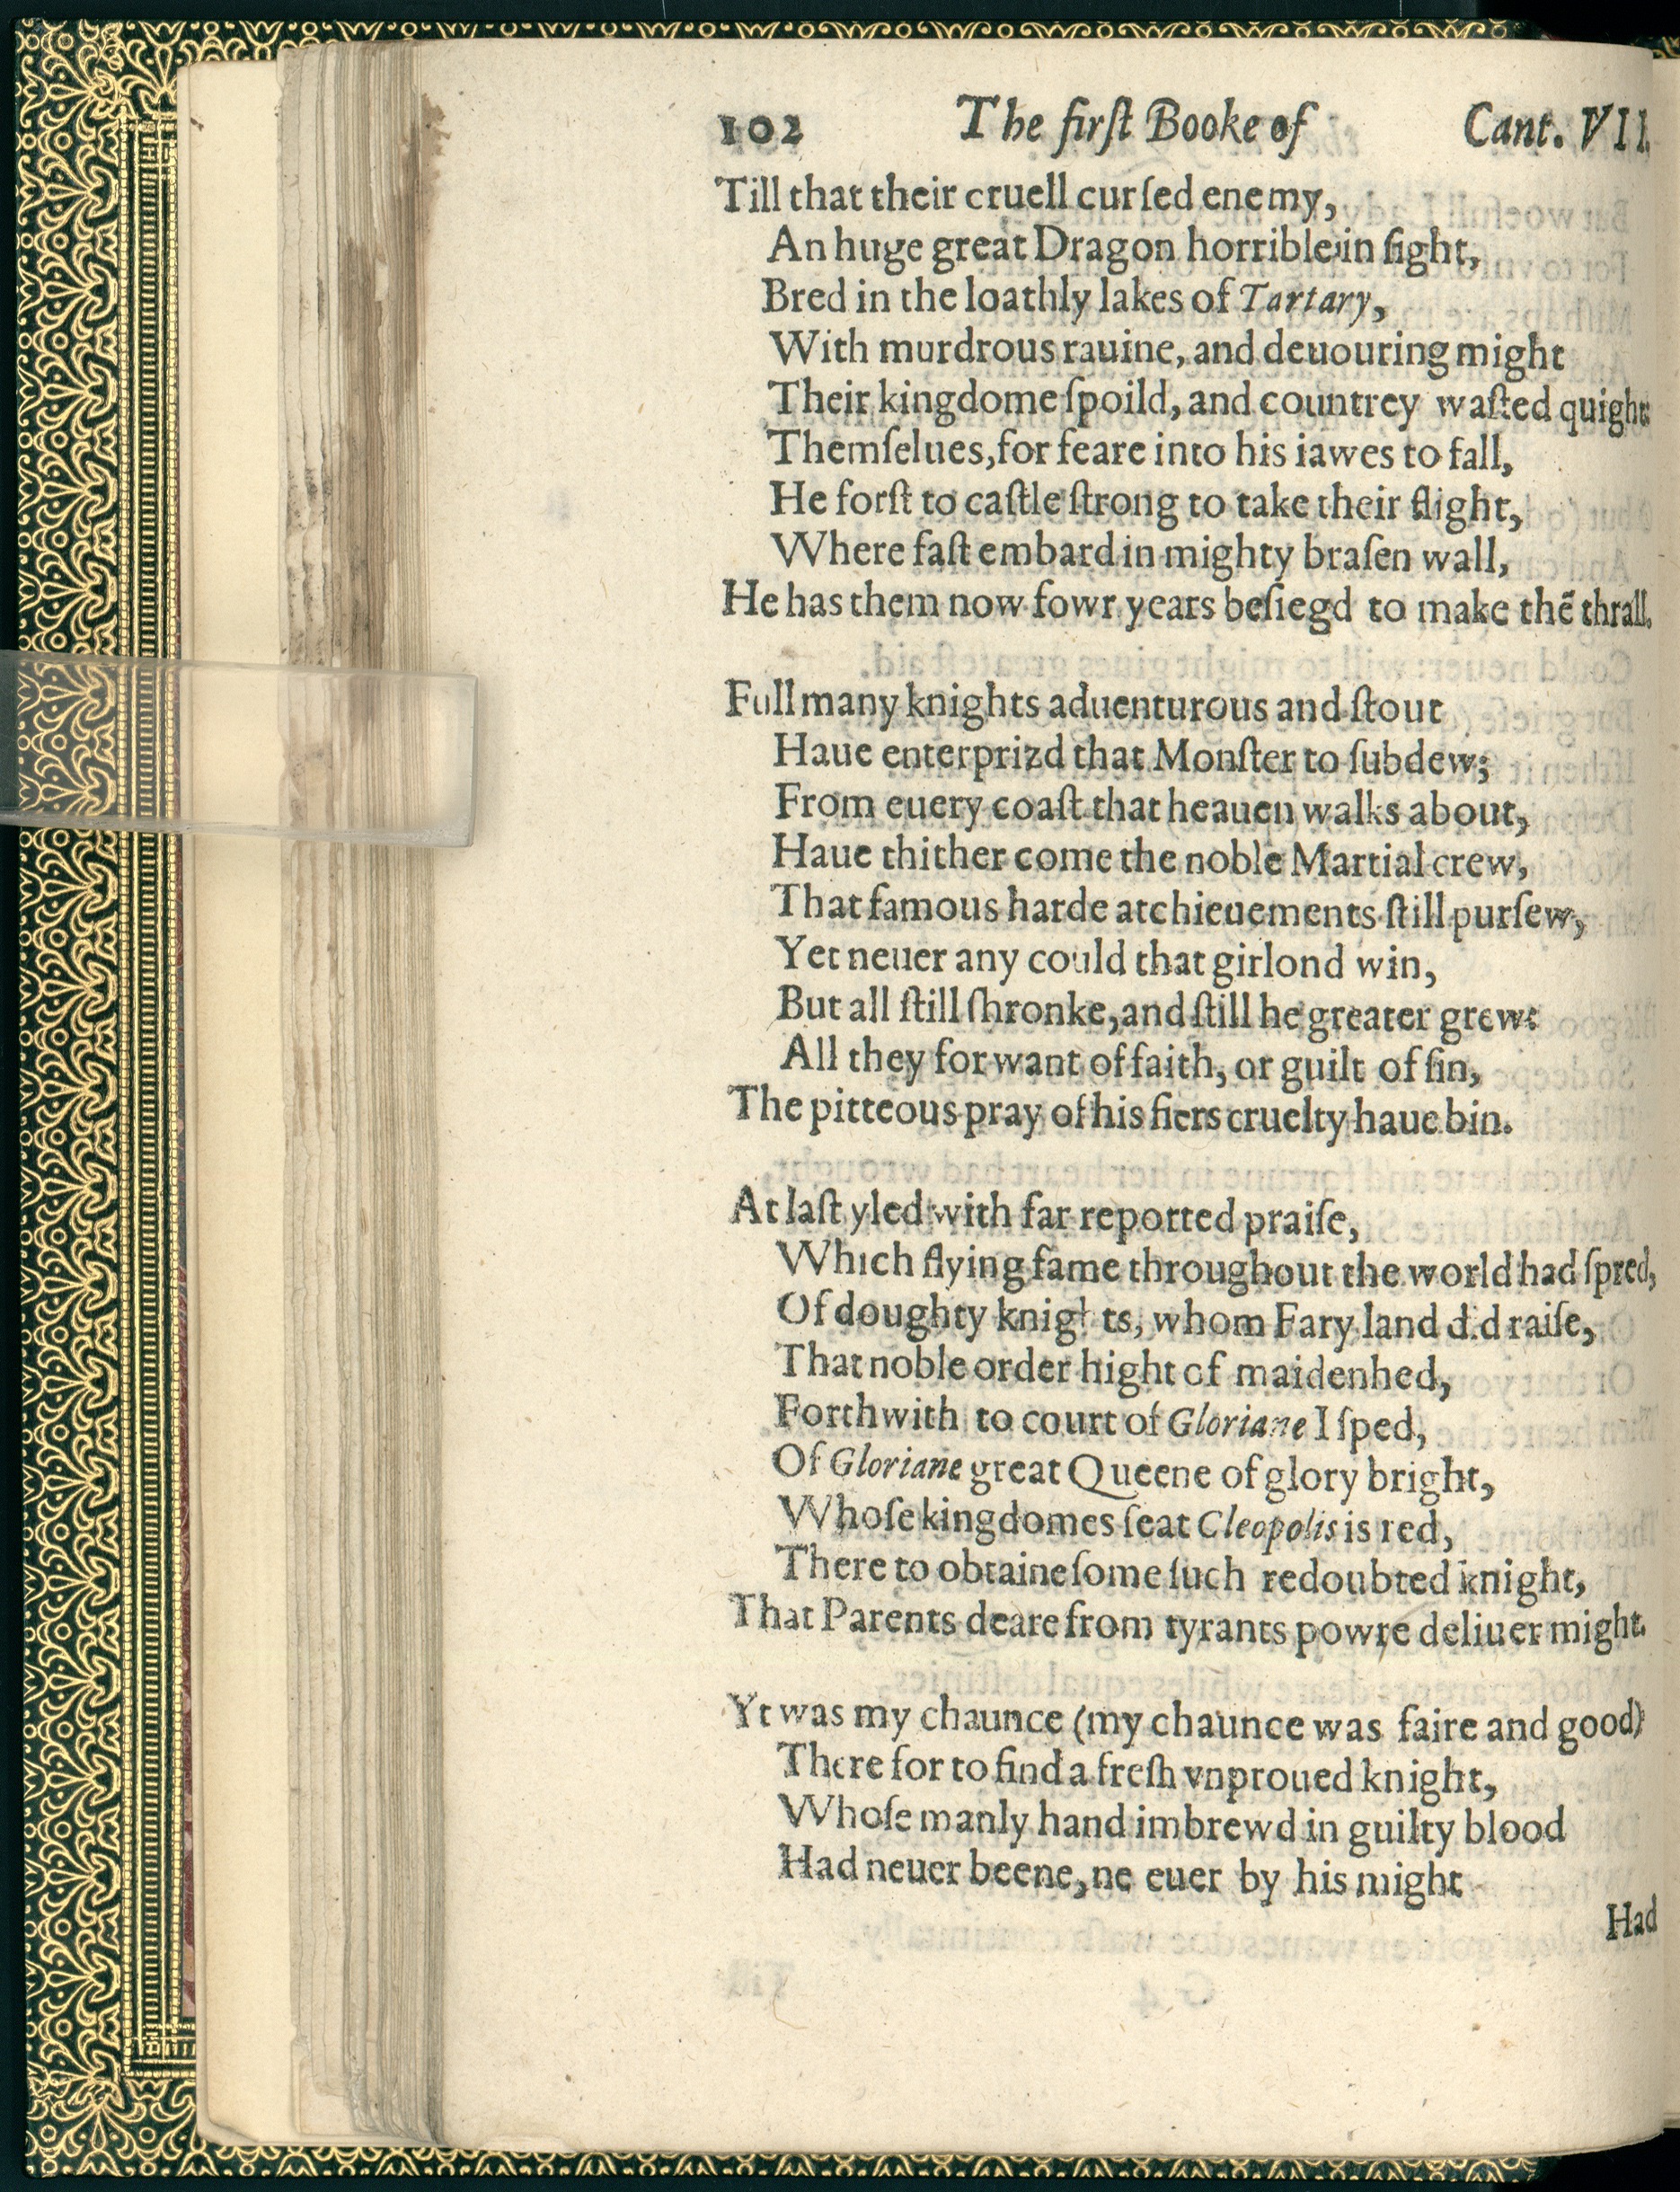 102 The firſt Booke of Cant. VII.
Till that their cruell curſed enemy,
An huge great Dragon horrible in ſight,
Bred in the loathly lakes of Tartary,
With murdrous rauine, and deuouring might
Their kingdome ſpoild, and countrey waſted quight:
Themſelues, for feare into his iawes to fall,
He forſt to caſtle ſtrong to take their flight,
Where faſt embard in mighty braſen wall,
He has them now fowr years beſiegd to make thē thrall.
Full many knights aduenturous and ſtout
Haue enterprizd that Monſter to ſubdew;
From euery coaſt that heauen walks about,
Haue thither come the noble Martial crew,
That famous harde atchieuements ſtill purſew,
Yet neuer any could that girlond win,
But all ſtill ſhronke, and ſtill he greater grew:
All they for want of faith, or guilt of ſin,
The pitteous pray of his fiers cruelty haue bin.
At laſt yled with far reported praiſe,
Which flying fame throughout the world had ſpred,
Of doughty knights, whom Fary land did raiſe,
That noble order hight of maidenhed,
Forthwith to court of Gloriane I ſped,
Of Gloriane great Queene of glory bright,
Whoſe kingdomes ſeat Cleopolis is red,
There to obtaine ſome ſuch redoubted knight,
That Parents deare from tyrants powre deliuer might.
Yt was my chaunce (my chaunce was faire and good)
There for to find a freſh vnproued knight,
Whoſe manly hand imbrewd in guilty blood
Had neuer beene, ne euer by his might
Had